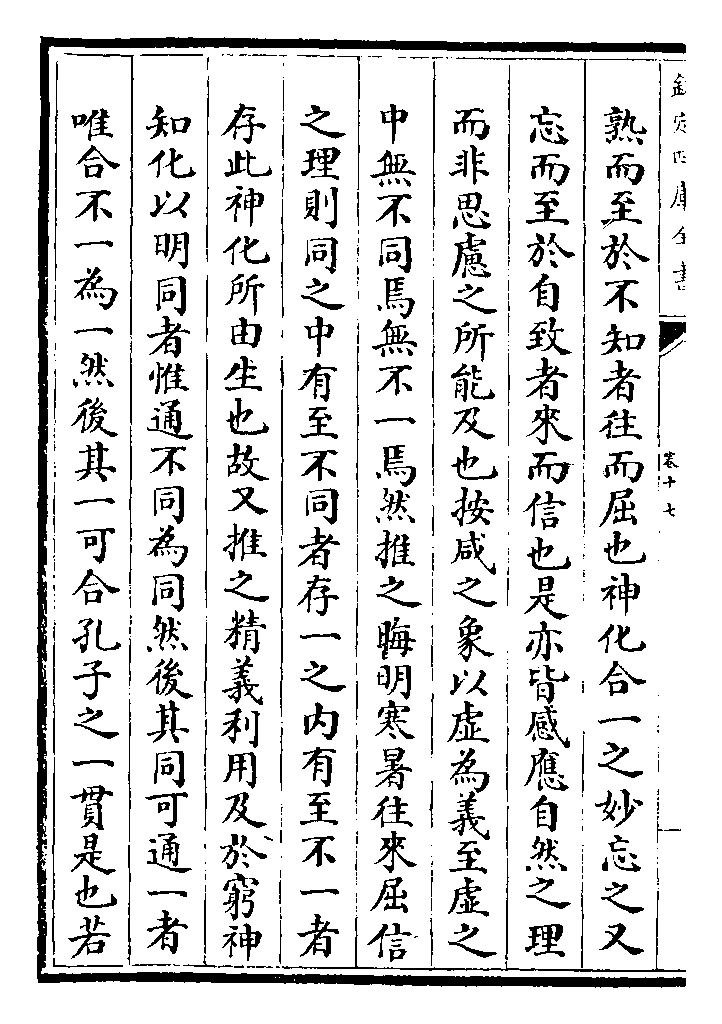 欽定四庫全書
卷十七
熟而至於不知者往而屈也神化合一之妙忘之又
忘而至於自致者來而信也是亦皆感應自然之理
而非思慮之所能及也按咸之象以虛為義至虛之
中無不同焉無不一焉然推之晦明寒暑往來屈信
之理則同之中有至不同者存一之内有至不一者
存此神化所由生也故又推之精義利用及於窮神
知化以明同者惟通不同為同然後其同可通一者
唯合不一為一然後其一可合孔子之一貫是也若